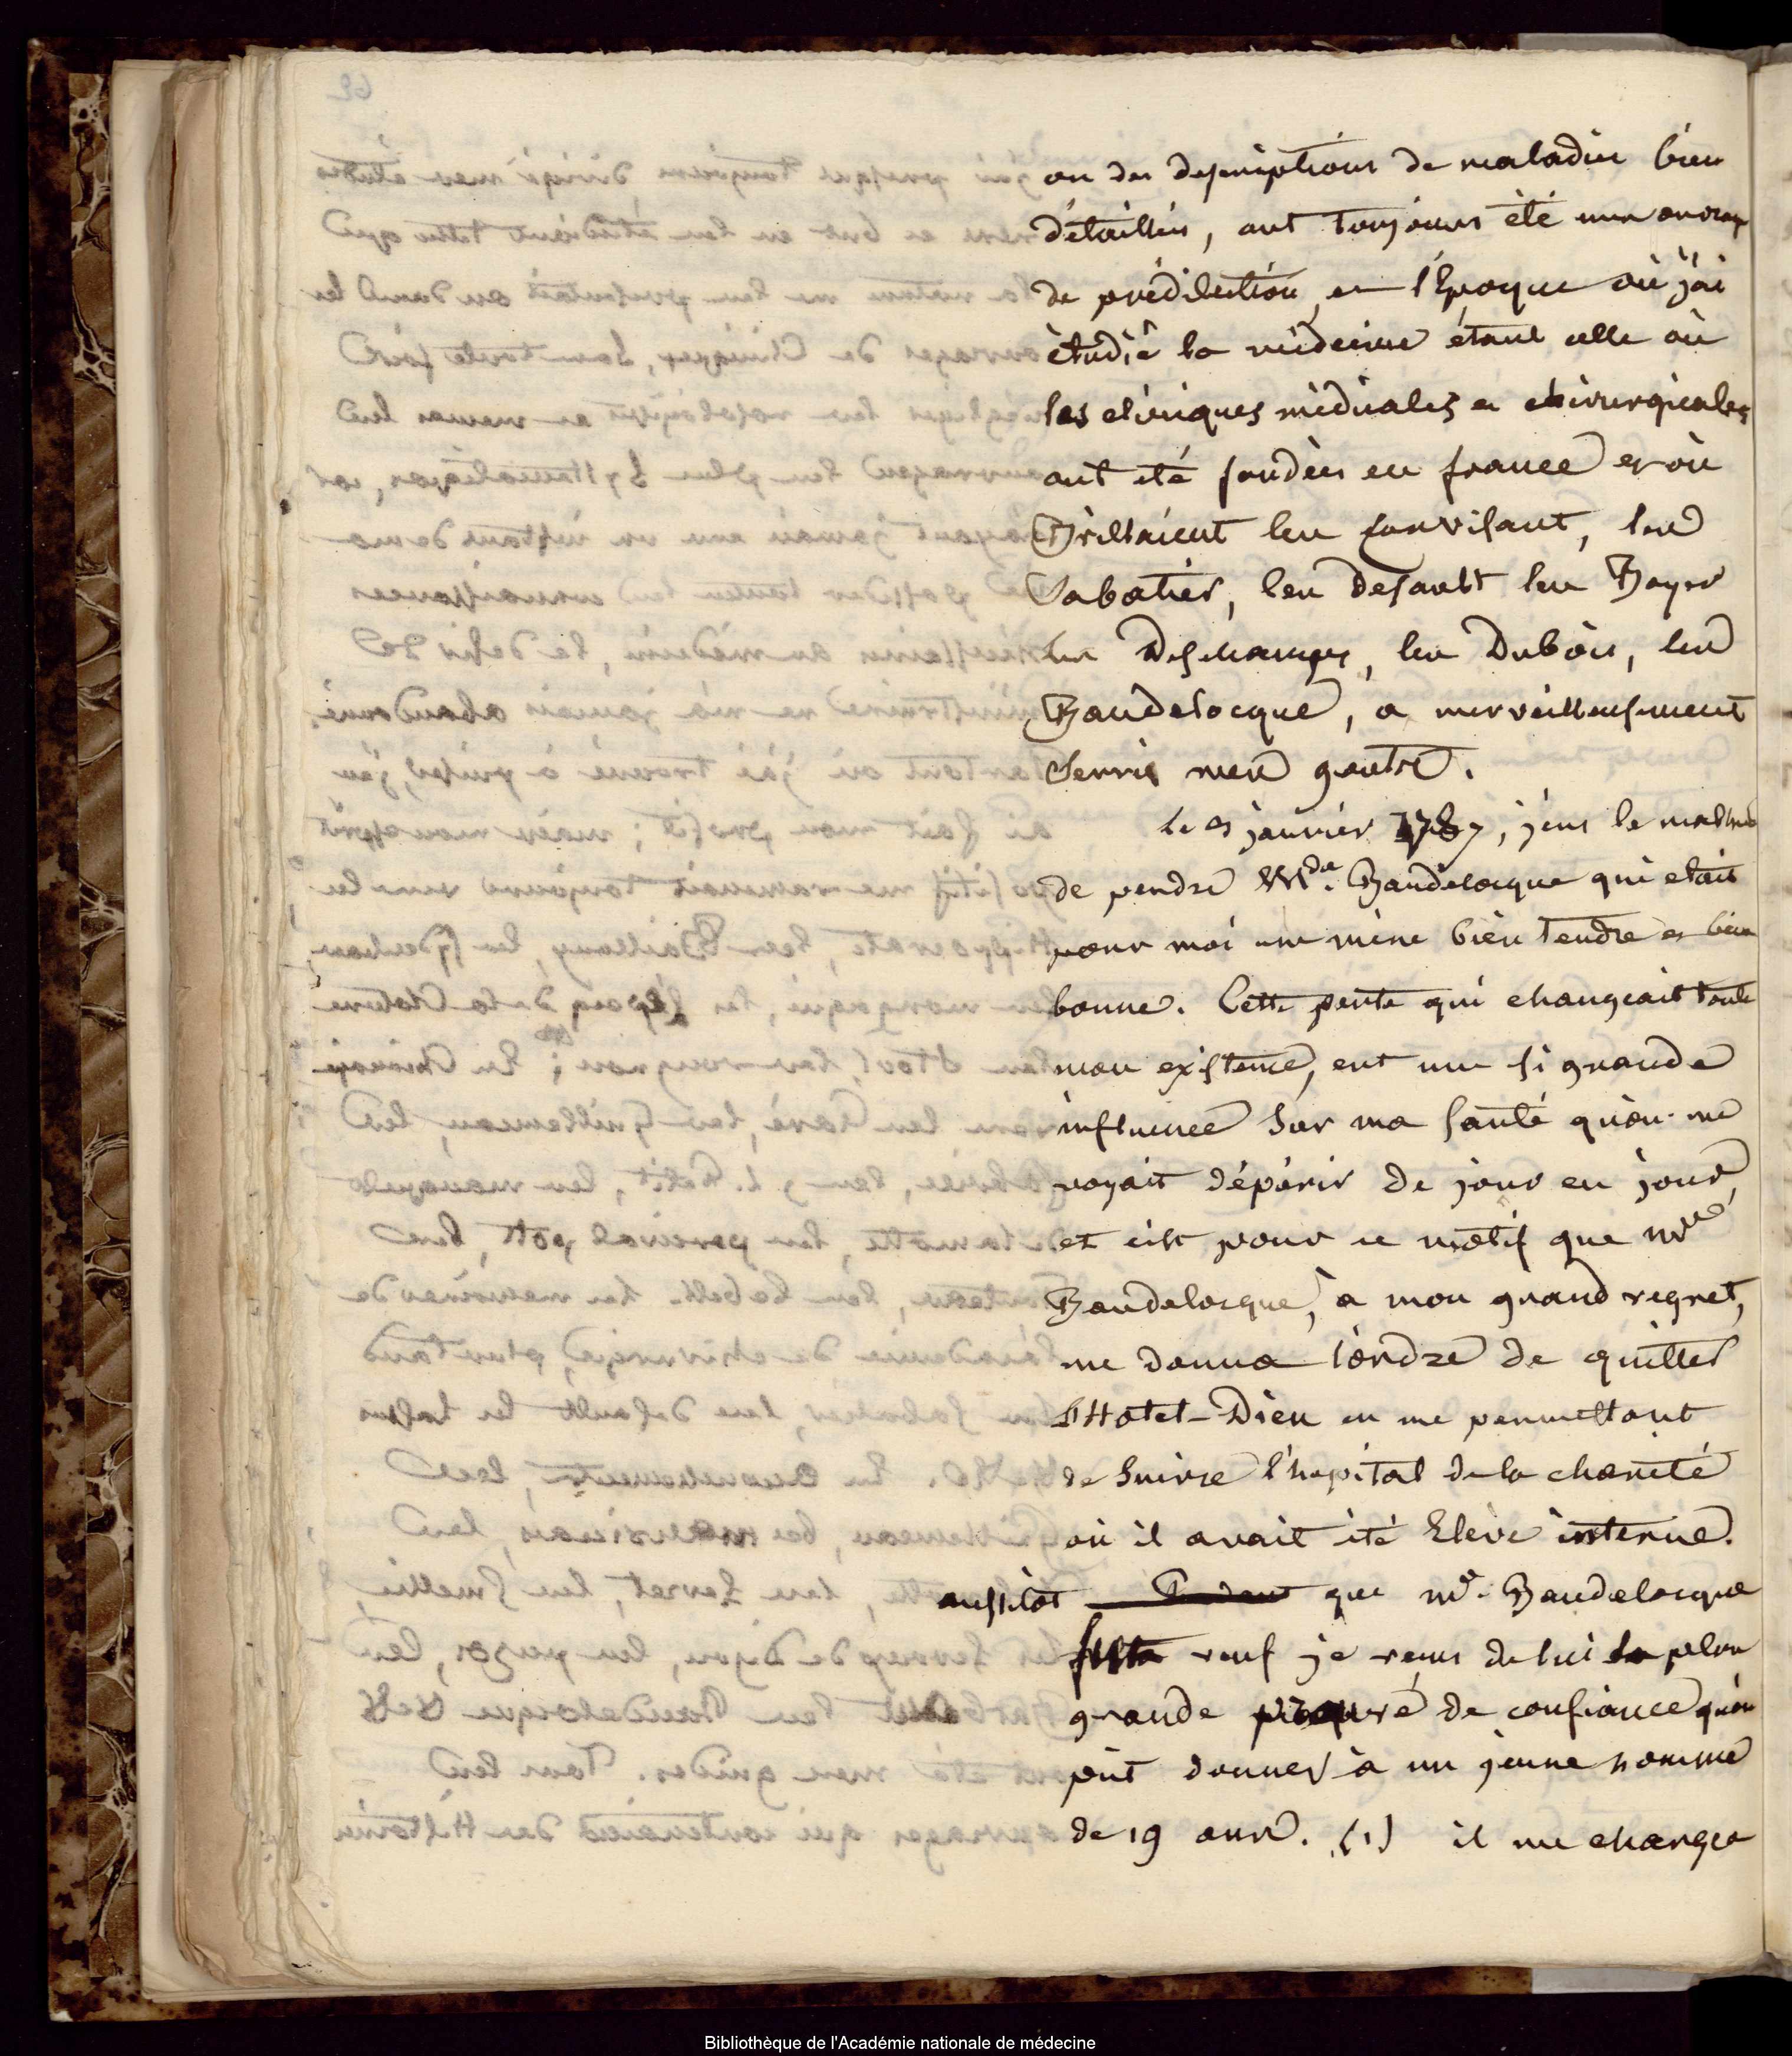 ou des descriptions de maladies bien
détaillées, ont toujours été mon ouvrage
de prédilection et l'Epoque où j'ai
étudié la médecine étant celle où
les cliniques médicales et chirurgicales
ont été fondées en france et où
Brillaient les Corvisart, les
Sabatier, les Desault les Boyer
les Deschamps, les Dubois, les
Baudelocque, a merveilleusement
Servis mes gouts.
Le janvier 1787, j'eus le malheur
de perdre Mde. Baudelocque qui etait
pour moi une mère bien tendre et bien
bonne. Cette perte qui changeait toute
mon existence, eut une si grande
influence Sur ma santé qu'on me
voyait dépérir de jour en jour,
et c'est pour ce motif que Mr
Baudelocque, à mon grand regret,
me donna l'ordre de quitter
l'Hotel-Dieu en me permettant
de Suivre l'hopital de la charité
où il avait été Elève interne.
aussitôt que Mr. Baudelocque
fut veuf je reçus de lui la plus
grande preuve de confiance qu'on
put donner à un jeune homme
de 19 ans. (1) il me chargea
Bibliothèque de l'Académie nationale de médecine